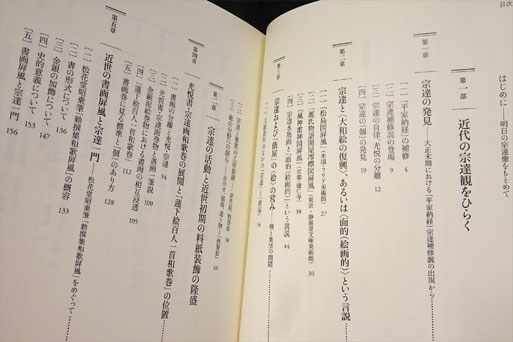 目次
はじめに――明日の宗達像をもとめて
第一部 近代の宗達観をひらく
第一章 宗達の発見 大正末期における「平家納経」宗達補修説の出現から
[一]「平家納経」の補修 4
[二] 宗達補修説の登場 9
[三] 宗達の自律、光悦の分離 12
[四] 宗達の「個」の発見 19
第二章 宗達と〈大和絵の復興〉、あるいは〈面的(絵画的)〉という言説
[一]「松島図屏風」(米国フリア美術館) 27
[二]「源氏物語関屋澪標図屏風」(東京・静嘉堂文庫美術館) 30
[三]「風神雷神図屏風」(京都・建仁寺) 38
[四] 宗達水墨画と〈面的(絵画的)〉という言説 44
第三章 宗達および「俵屋」の〈絵〉の営み 個と集団の問題
第二部 宗達の活動と近世初期の料紙装飾の隆盛
第四章 光悦書・宗達画和歌巻の展開と「蓮下絵百人一首和歌巻」の位置
[一] 書画の分離と光悦・宗達 94
[二] 光悦書・宗達画巻物と「書画一致」筆説 100
[三] 金銀泥絵巻物における書画の相互浸透 105
[四]「蓮下絵百人一首和歌巻」 112
[五] 書画巻に見る標準と「個」のあり方 128
第五章 近世の書画屏風と宗達一門 松花堂昭乗筆「勅撰集和歌屏風」をめぐって
[一] 松花堂昭乗筆「勅撰集和歌屏風」の概容 133
[二] 書の形式について 136
[三] 金銀の加飾について 147
[四] 史的意義について 153
[五] 書画屏風と宗達一門 156